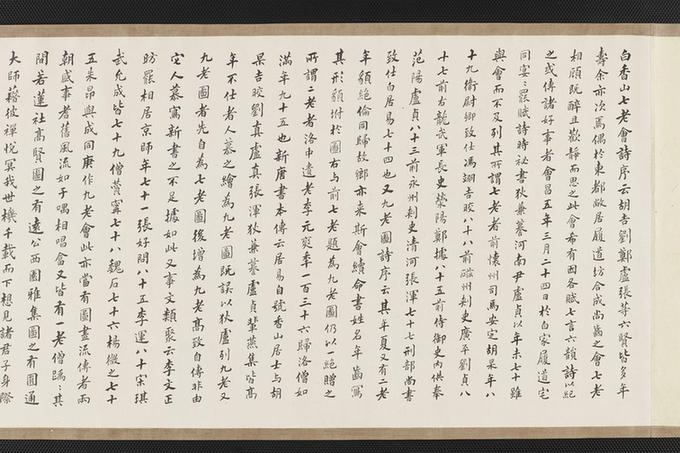 白香山七老會詩序云胡吉劉鄭盧張等六賢皆多年
壽余亦次焉偶於東都敝居履道坊合成尚齒之會七老
相顧既醉且歡靜而思之此會希有因各賦七言六韻詩以紀
之或傳諸好事者會昌五年三月二十四日於白家履道宅
同宴罷賦詩時祕書狄兼謩河南尹盧貞以年未七十雖
與會而不及列其所謂七老者前懷州司馬安定胡杲年八
十九衛尉卿致仕馮翊吉皎八十八前磁州刺史廣平劉真八
十七前右龍武軍長史滎陽鄭據八十五前侍御史內供奉
范陽盧貞八十三前永州刺史清河張渾七十七刑部尚書
致仕白居易七十四也又九老圖詩序云其年夏又有二老
年貌絕倫同歸故鄉亦來斯會續命書姓名年齒寫
其形貌附於圖右與前七老題為九老圖仍以一絕贈之
所謂二老者洛中遺老李元爽年一百三十六歸洛僧如
滿年九十五也新唐書本傳云居易自號香山居士與胡
杲吉皎劉真盧真張渾狄兼謩盧貞輩燕集皆高
年不仕者人慕之繪為九老圖既誤以狄盧列九老又
九老圖者先自為七老圖後增為九老高致自傳非由
定人慕寫新書之不足據如此又事文類聚云李文正
昉罷相居京師年七十一張好問八十五李運八十宋琪
武允成皆七十九僧贊寧七十八魏石七十六楊徽之七十
五朱昂與成同庚作九老會此亦當有圖畫流傳者而
朝盛事者舊風流如于喁相唱畣又皆有一老僧廁其
間若蓮社高賢圖之有遠公西園雅集圖之有圓通
大師藉彼禪悅冥我世機千載而下想見諸君子身際